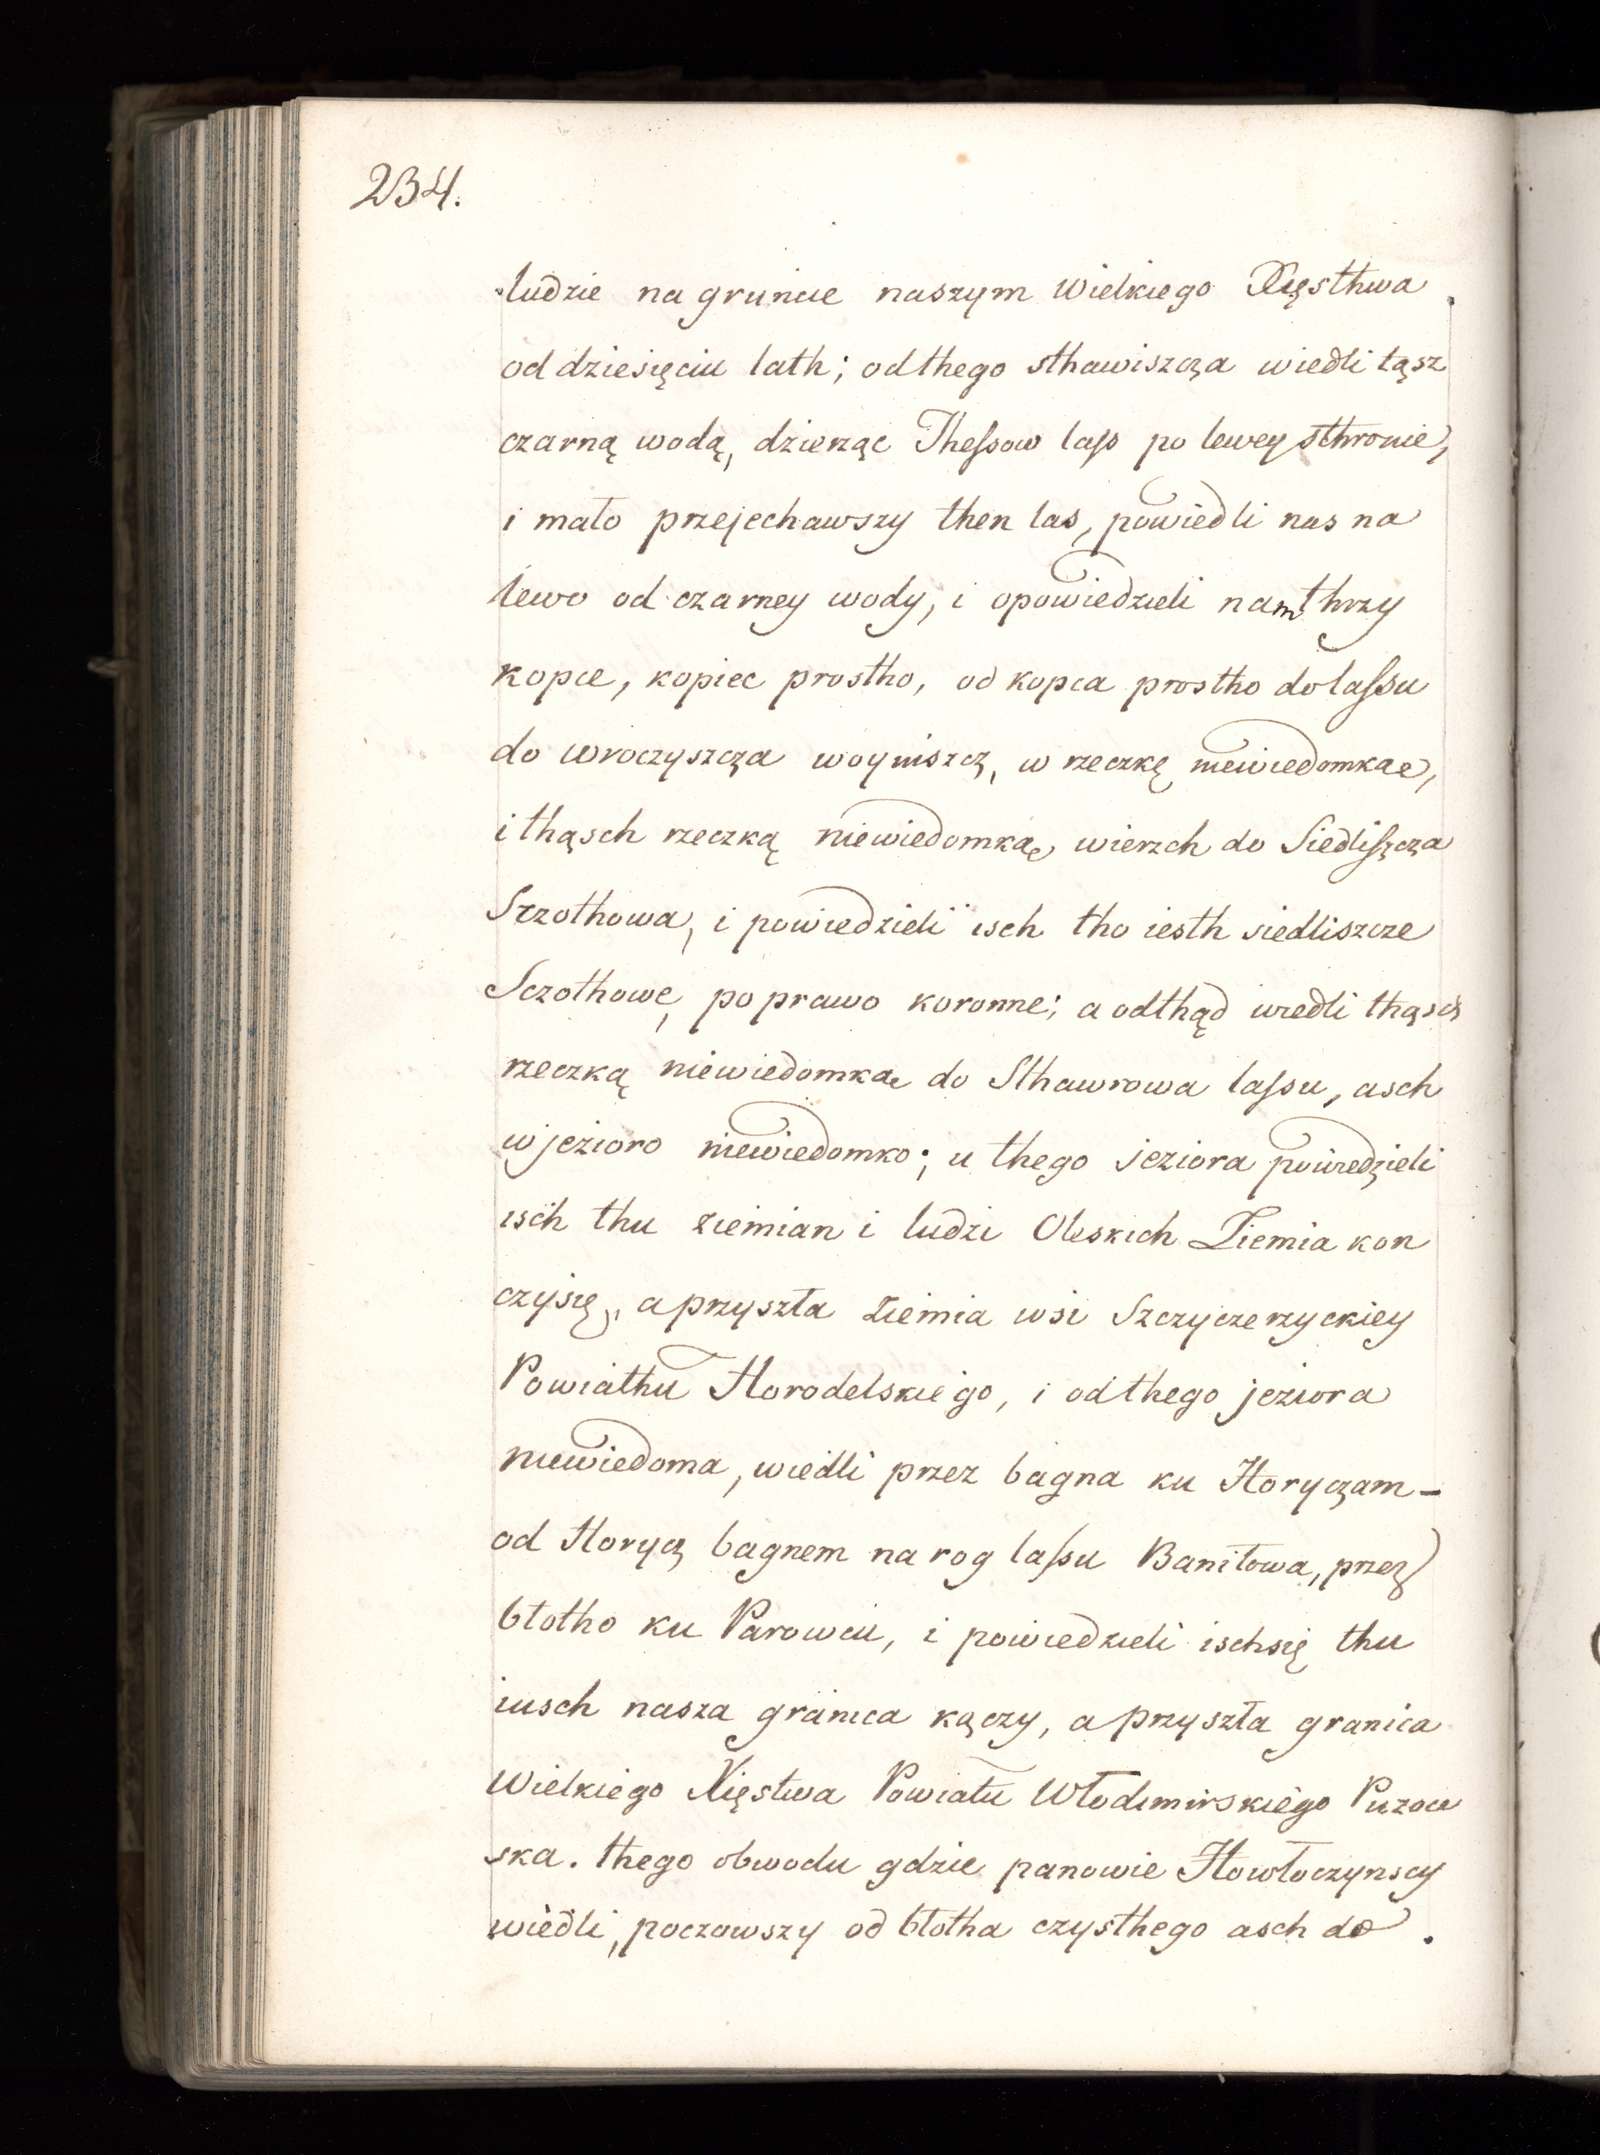 234.
ludzie na gruncie naszym Wielkiego Xięsthwa
od dziesięciu lath; od thego sthawiszcza wiedli tąsz
czarną wodą, dzierząc Thessow lass po lewey sthronie,
i mało przejechawszy then las, powiedli nas na
lewo od czarney wody, i opowiedzieli nam thrzy
kopce, kopiec prostho, od kopca prostho do lassu
do wroczyszcza woyniszcz, w rzeczkę niewiedomkae,
i thąsch rzeczką niewiedomkae wierzch do Siedliszcza
Szzothowa, i powiedzieli isch tho iesth siedliszcze
Sczothowe, po prawo koronne; a odthąd wiedli thąsch
rzeczką niewiedomkae do Sthawrowa lassu, asch
w jezioro niewiedomko; u thego jeziora powiedzieli
isch thu ziemian i ludzi Oleskich Ziemia kon
czysię, a przyszła Ziemia wsi Szczyczerzyckiey
Powiathu Horodelskiego, i od thego jeziora
niewiedoma, wiedli przez bagna ku Horyczam-
od Horycz bagnem na rog lassu Baniłowa, przez
błotho ku Parowcu, i powiedzieli ischsię thu
iusch nasza granica kączy, a przyszła granica
Wielkiego Xięstwa Powiatu Włodimirskiego Puzow
ska. thego obwodu gdzie panowie Howłoczynscy
wiedli, poczowszy od błotha czysthego asch do